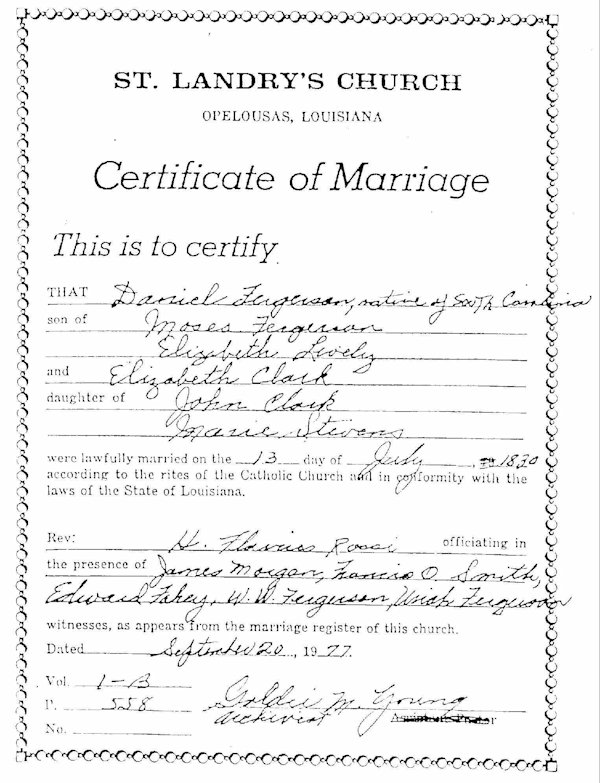 ST. LANDRY'S CHURCH
OPELOUSAS, LOUISIANA
Certificate of Marriage
This is to certify
THAT Daniel Fergerson, native of South Carolina
son of Moses Fergerson
Elizabeth Lively
and Elizabeth Clark
daughter of John Clark
Marie Stevens
were lawfully married on the 13 day of July, 1820
according to the rites of the Catholic Church and in conformity with the
laws of the State of Louisiana.
Rev: H. Flavius Rossi officiating in
the presence of James Morgan, Francis O. Smith,
Edward Fahey, W. W. Fergerson, Uriah Fergerson
witnesses, as appears from the marriage register of this church.
Dated September 20, 1977.
Vol. 1-B
P. 558 Goldie M. Young
Archivist
No.